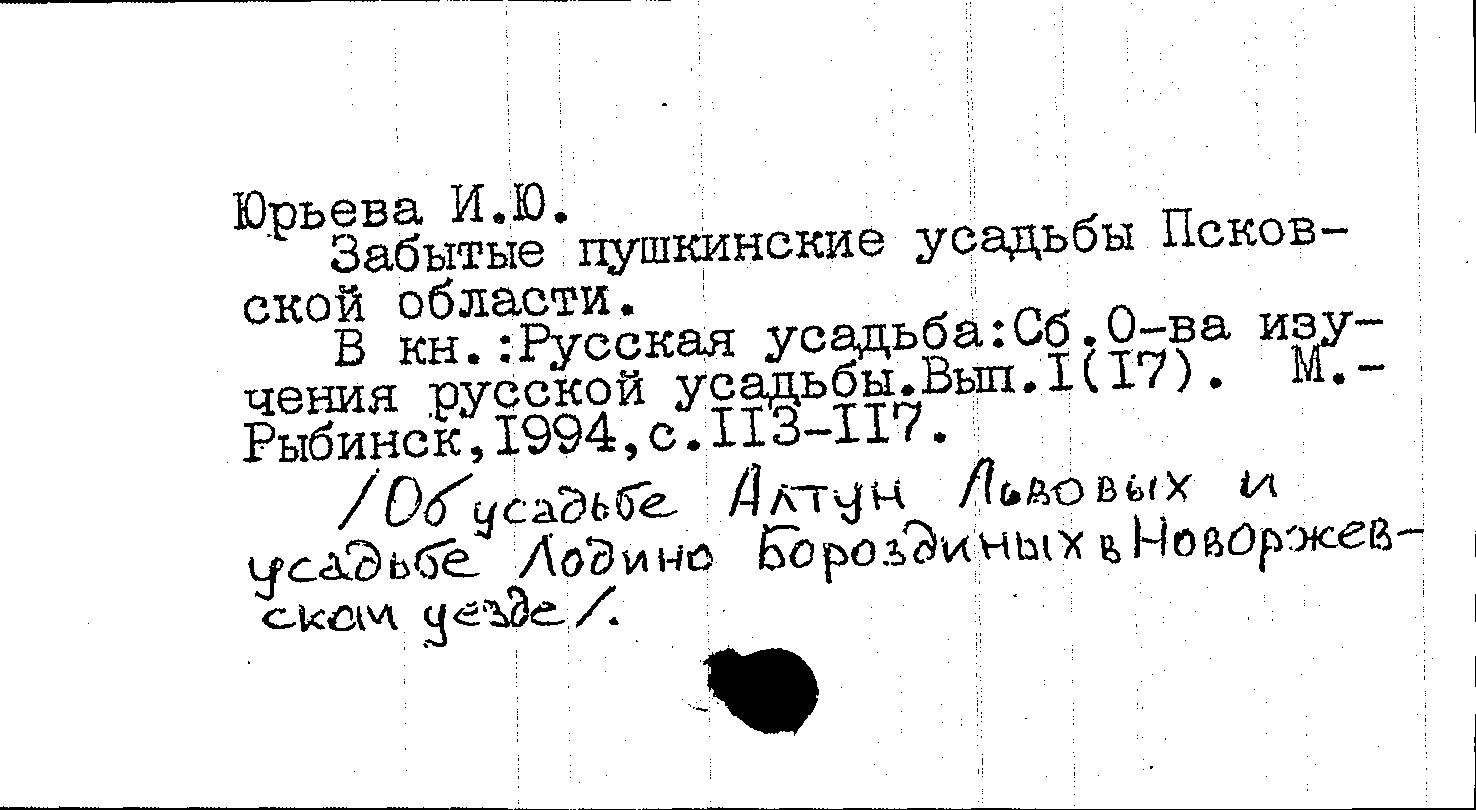 Юрьева И.Ю.
Забытые пушкинские усадьбы Псков-
ской области.
В кн.:Русская усадьба:Сб.О-ва изу-
чения русской усадьбы.Вып.I(I7). М.-
Рыбинск,I994,с.II3-II7.
/Об усадьбе Алтун Львовых и
усадьбе Лодино Бороздиных в Новоржев-
ском уезде/.